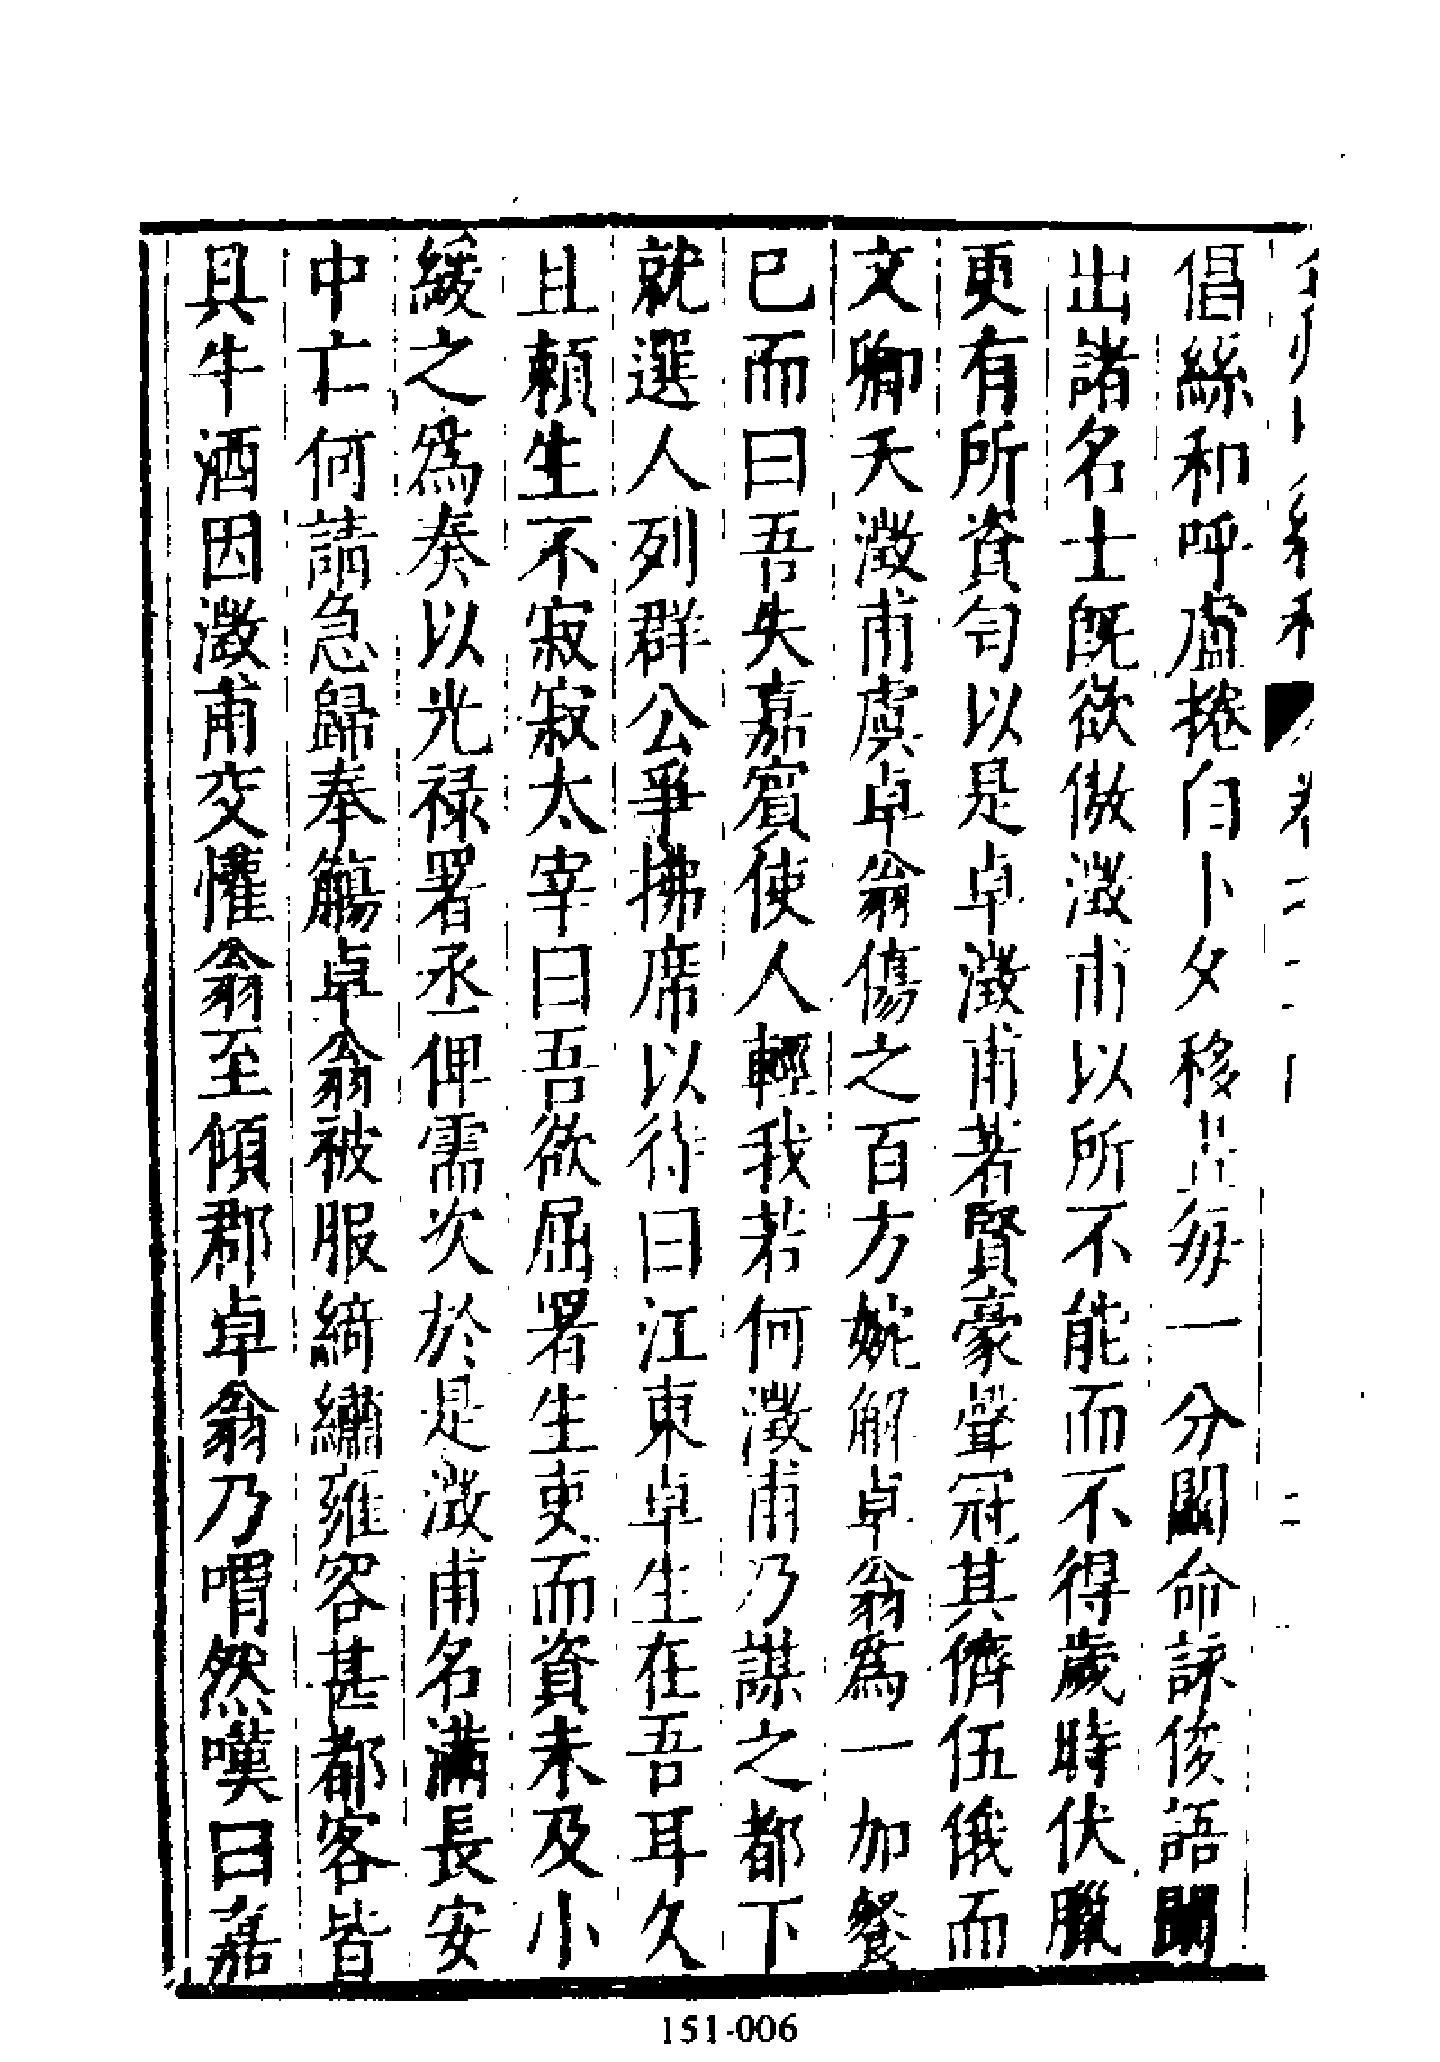 倡絲和呼盧捲白卜夕移晝每一分鬮命諑俊語鬮
出諸名士旣欲傲澂甫以所不能而不得歲時伏臘
更有所資匄以是卓澂甫著賢豪聲冠其儕伍俄而
文卿夭澂甫虞卓翁傷之百方婉解卓翁爲一加餐
已而曰吾失嘉賓使人輕我若何澂甫乃謀之都下
就選人列群公爭拂席以待曰江東卓生在吾耳久
且頼生不寂寂太宰曰吾欲屈署生吏而資未及小
緩之爲奏以光禄署丞俾需次於是澂甫名滿長安
中亡何請急歸奉觴卓翁被服綺繡雍容甚都客皆
具牛酒因澂甫交懽翁至傾郡卓翁乃喟然嘆曰嘉
151-006